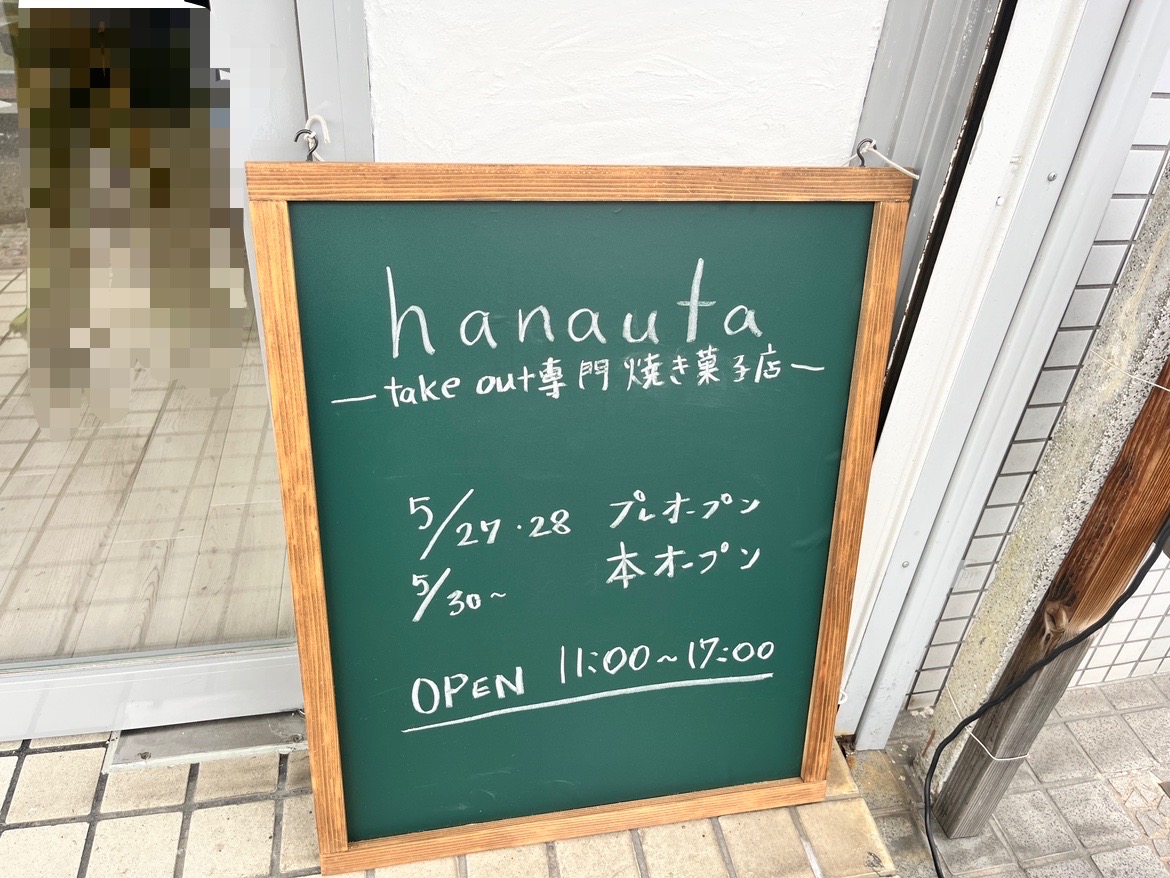 hanauta
ーtake out専門 焼き菓子店ー
5/27・28 プレオープン
5/30~ 本オープン
OPEN 11:00~17:00